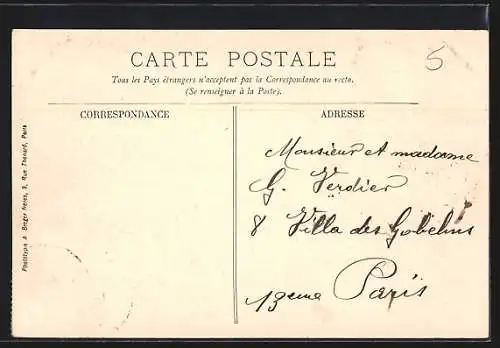 CARTE POSTALE
5
Tous les Pays étrangers n'acceptent pas la Correspondance au recto.
(Se renseigner à la Poste).
CORRESPONDANCE
ADRESSE
Monsieur et madame
G. Verdier
8 Villa des Gobelins
13eme Paris
Phototypie A. Breger frères, 9, Rue Thénard, Paris